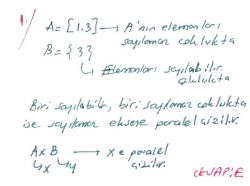 1.
A = [1,3] → A'nın elemanları sayılamaz çoklukta
B = {3}
↳ Elemanları sayılabilir çoklukta
Biri sayılabilir, biri sayılamaz çoklukta
ise sayılamaz eksene paralel çizilir.
A x B → x e paralel
↳x ↳y çizilir.
CEVAP: E